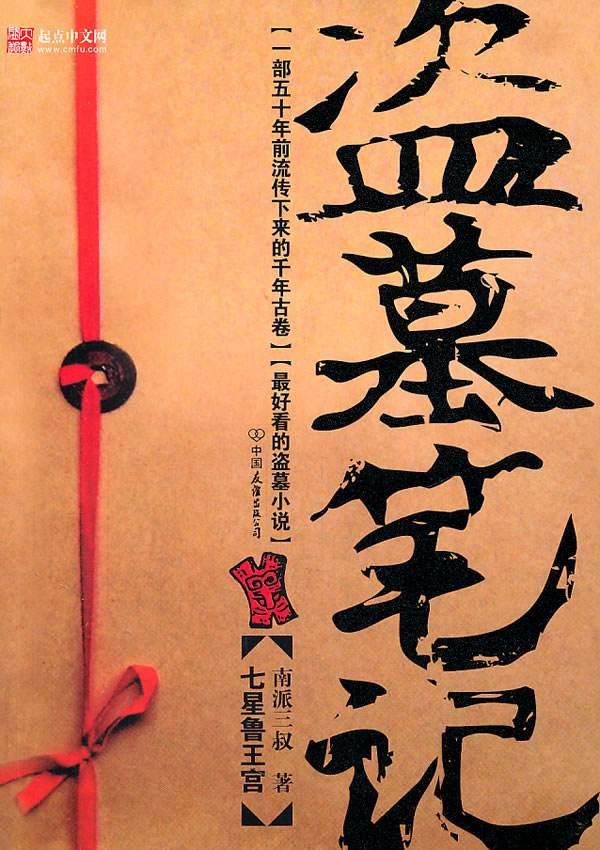 起点中文网
www.cmfu.com
盗墓笔记
【一部五十年前流传下来的千年古卷】【最好看的盗墓小说】
中国友谊出版公司
南派三叔 著
七星鲁王宫